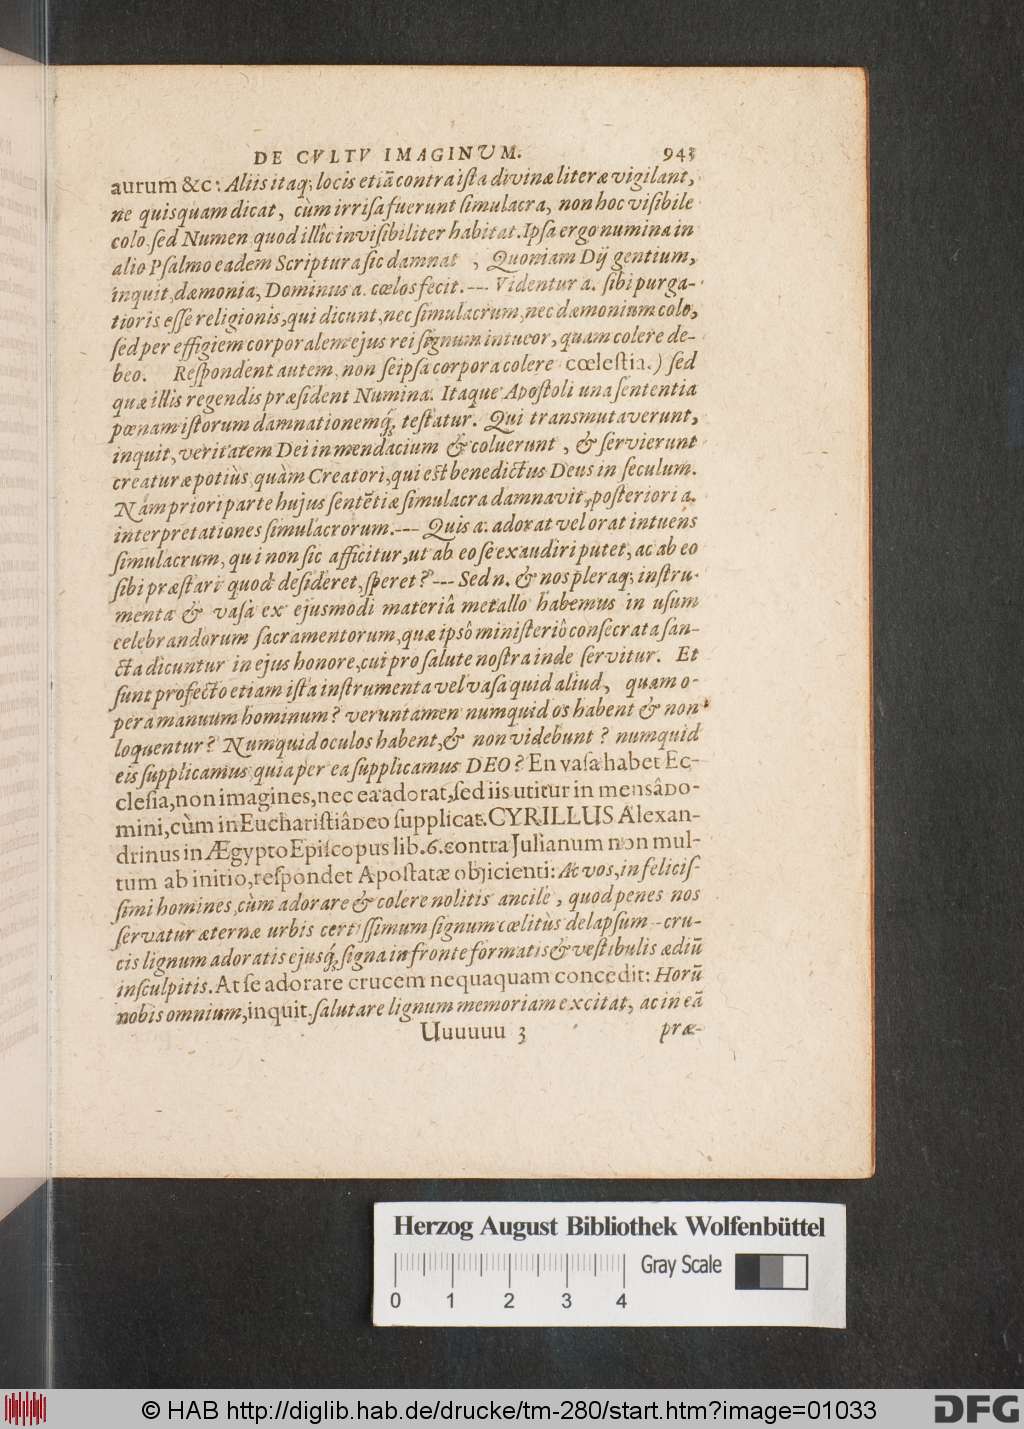 DE CVLTV IMAGINUM. 943
aurum &c: Aliis itaq; locis etiā contra ista divinæ literæ vigilant,
ne quisquam dicat, cùm irrisa fuerunt simulacra, non hoc visibile
colo, sed Numen quod illîc invisibiliter habitat. Ipsa ergo numina in
alio Psalmo eadem Scriptura sic damnat, Quoniam Dij gentium,
inquit, dæmonia, Dominus a. cœlos fecit.--- Videntur a. sibi purga-
tioris esse religionis, qui dicunt, nec simulacrum, nec dæmonium colo,
sed per effigiem corporalem ejus rei signum intueor, quam colere de-
beo. Respondent autem, non seipsa corpora colere cœlestia.) sed
quæ illis regendis præsident Numina. Itaque Apostoli una sententia
pœnam istorum damnationemq́; testatur. Qui transmutaverunt,
inquit, veritatem Dei in mendacium & coluerunt, & servierunt
creaturæ potiùs, quàm Creatori, qui est benedictus Deus in seculum.
Nam priori parte hujus sentētiæ simulacra damnavit, posteriori a.
interpretationes simulacrorum.--- Quis a. adorat vel orat intuens
simulacrum, qui non sic afficitur, ut ab eo se exaudiri putet, ac ab eo
sibi præstari quod desideret, speret?--- Sed n. & nos pleraq; instru-
menta & vasa ex ejusmodi materiâ metallo habemus in usum
celebrandorum sacramentorum, quæ ipsô ministeriô consecrata san-
cta dicuntur in ejus honore, cui pro salute nostra inde servitur. Et
sunt profectò etiam ista instrumenta vel vasa quid aliud, quam o-
pera manuum hominum? veruntamen numquid os habent & non
loquentur? Numquid oculos habent, & non videbunt? numquid
eis supplicamus, quia per ea supplicamus DEO? En vasa habet Ec-
clesia, non imagines, nec ea adorat, sed iis utitur in mensâ Do-
mini, cùm in Eucharistiâ Deo supplicat. CYRILLUS Alexan-
drinus in Ægypto Episcopus lib. 6. contra Julianum non mul-
tum ab initio, respondet Apostatæ objicienti: Ac vos, infelicis-
simi homines, cùm adorare & colere nolitis ancile, quod penes nos
servatur æternæ urbis certissimum signum cœlitùs delapsum - cru-
cis lignum adoratis ejusq́; signa in fronte formatis & vestibulis ædiū
insculpitis. At se adorare crucem nequaquam concedit: Horū
nobis omnium, inquit, salutare lignum memoriam excitat, ac in eā
Uuuuuu 3 præ-
Herzog August Bibliothek Wolfenbüttel
Gray Scale
0 1 2 3 4
© HAB http://diglib.hab.de/drucke/tm-280/start.htm?image=01033
DFG